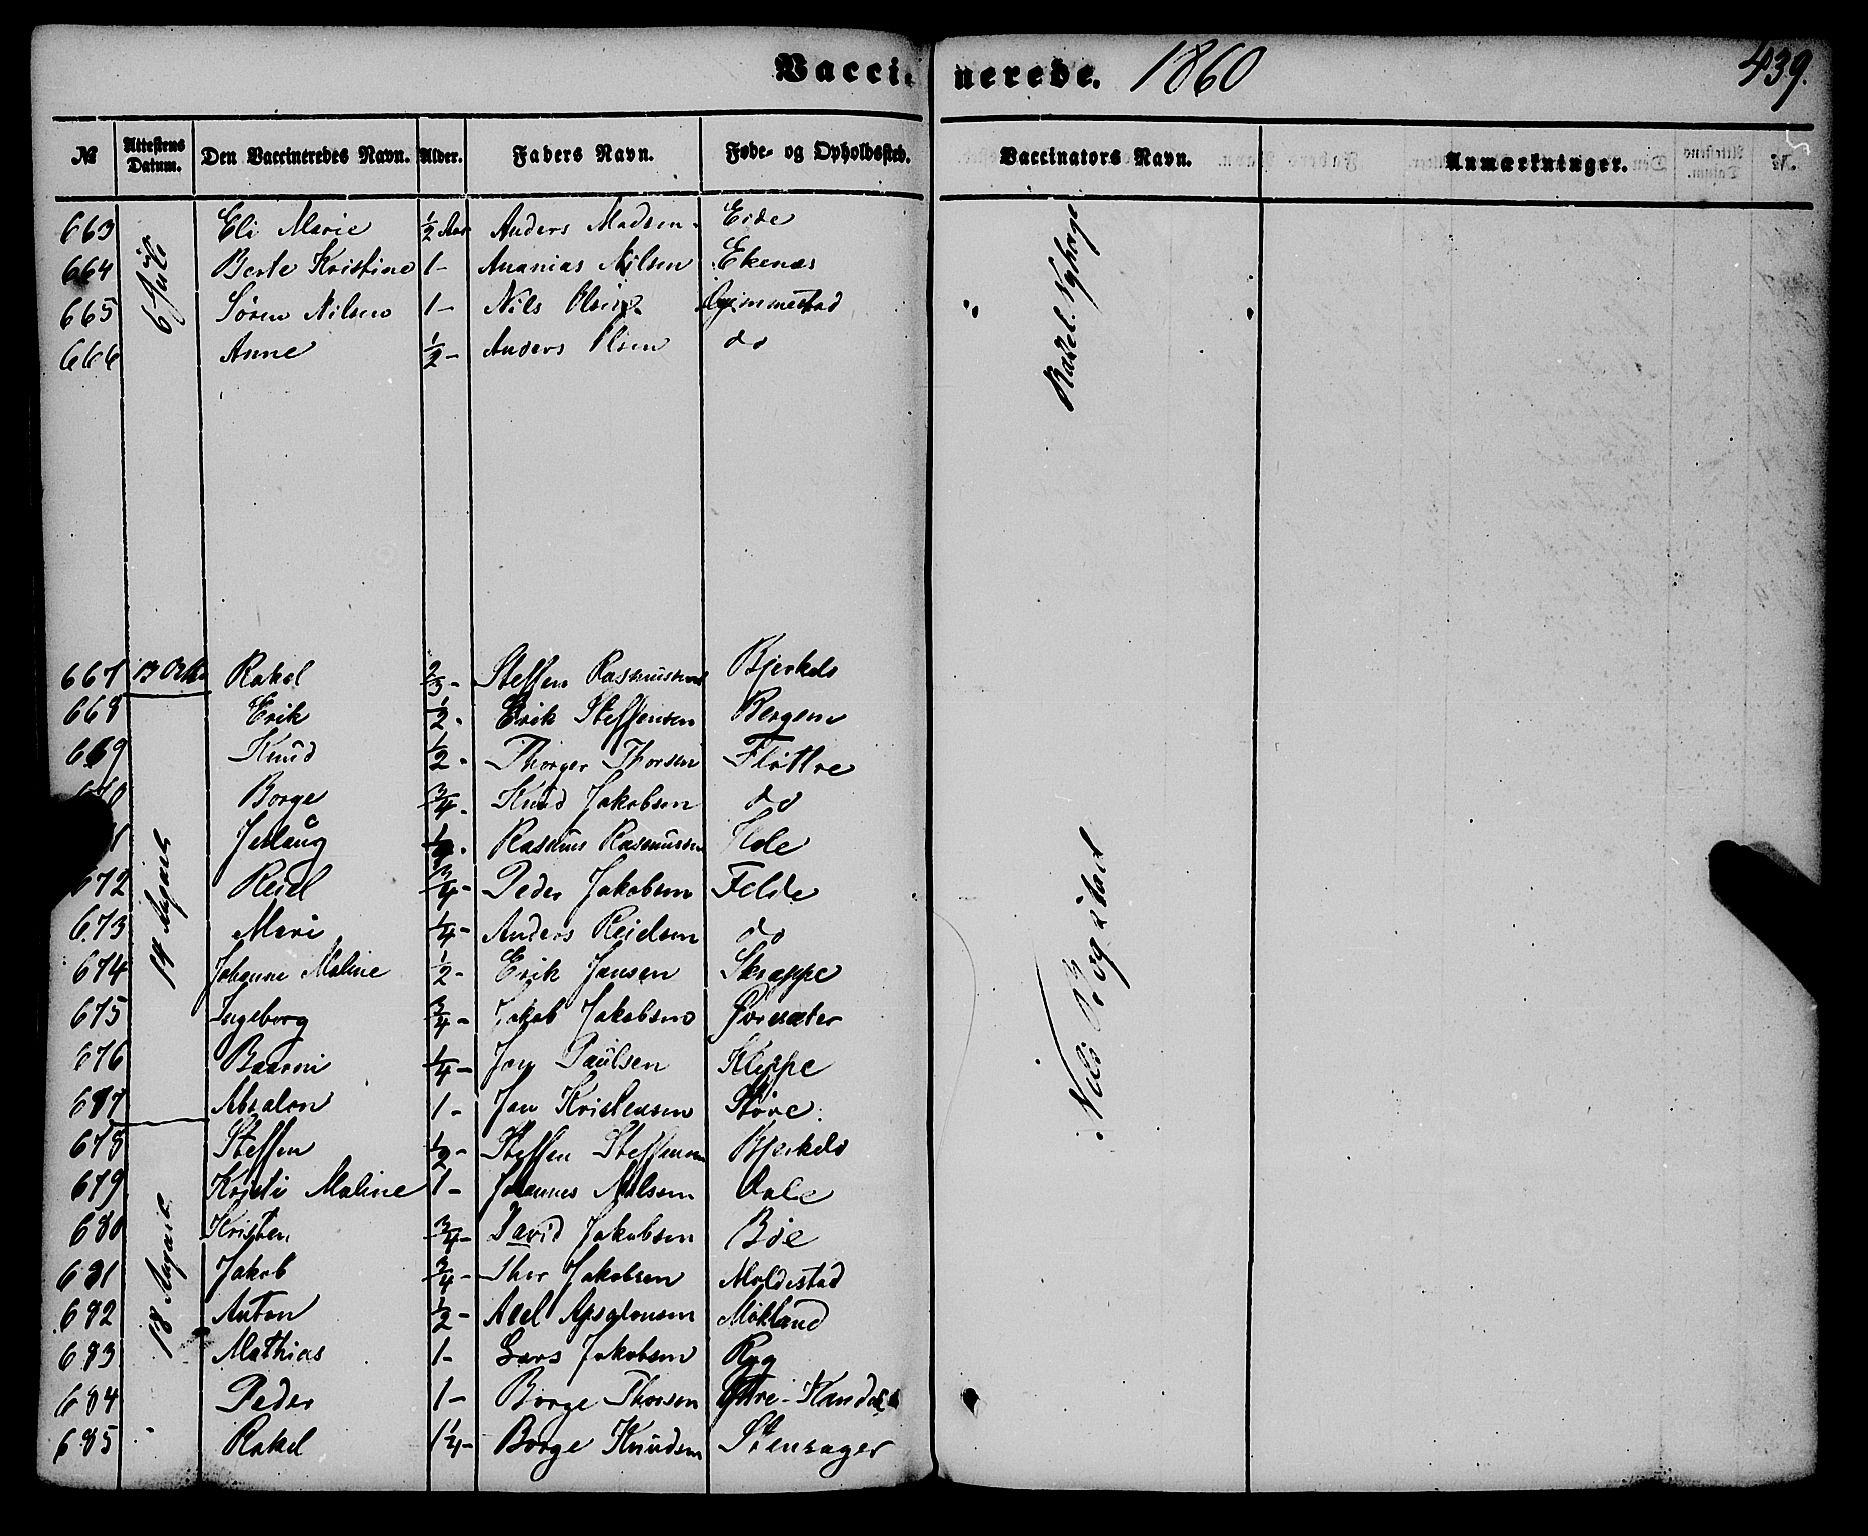 Vaccinerede. 1860 439.
№ Attestens Datum. Den Vaccineredes Navn. Alder. Faders Navn. Føde- og Opholdssted. Vaccinators Navn. Anmærkninger.
663 6 Juli Eli Marie ½ Aar Anders Madsen Eide
664 Berte Kristine 1 - Ananias Nilsen Ekenæs
665 Søren Nilsen 1 - Nils Olsen Gjimmestad
666 Anne ½ - Anders Olsen do
667 Rakel 2/3 - Steffen Rasmussen Bjerkelo
668 Erik ½ - Erik Steffensen Bergem
669 Knud ½ - Thorger Thorsen Fløttre
Borge ¾ - Knud Jakobsen do
Rasmus Rasmussen
672 Reiel ¾ - Peder Jakobsen Felde
673 Mari ¼ - Anders Reielsen do
674 14 August Johanne Maline ½ - Erik Jansen Skrappe
675 Ingeborg ¾ - Jakob Jakobsen
676 Baarni ¼ - Jon Paulsen Kleppe
677 Absalon 1 - Jan Kristensen Støre
678 Steffen ½ - Steffen Steffensen Bjerkelo
679 Kristi Maline 1 - Johannes Nilsen
680 Kristen ¾ - David Jakobsen Bøe
681 18 August Jakob ¾ - Ther Jakobsen Moldestad
682 Anton ½ - Abel Apsalonsen Mokland
683 Mathias 1 - Lars Jakobsen Ryg
684 Peder 1 - Borge Thorsen
685 Rakel 1¼ - Borge Knudsen Stensager
Nils Vogstad